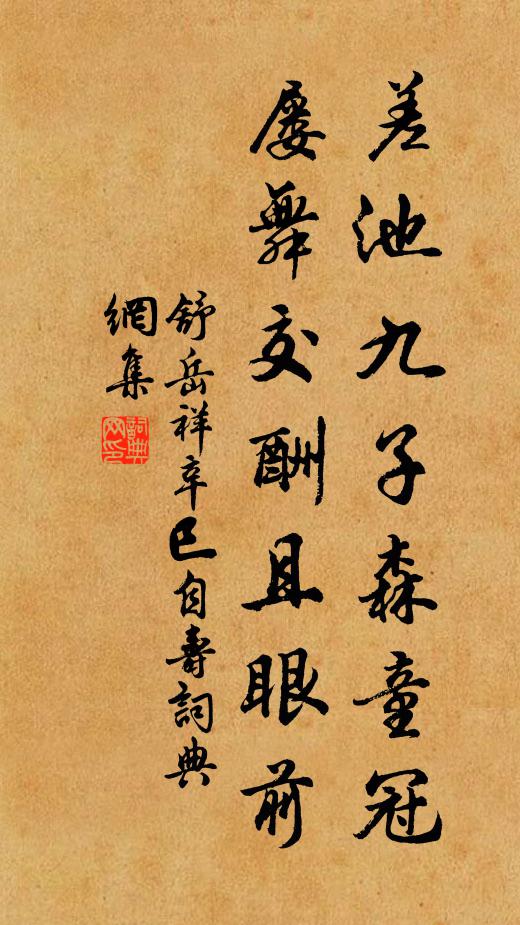 差池九子森童冠
屡舞交酬且眼前
舒岳祥辛巳自壽詞典
網集
詞典
网印